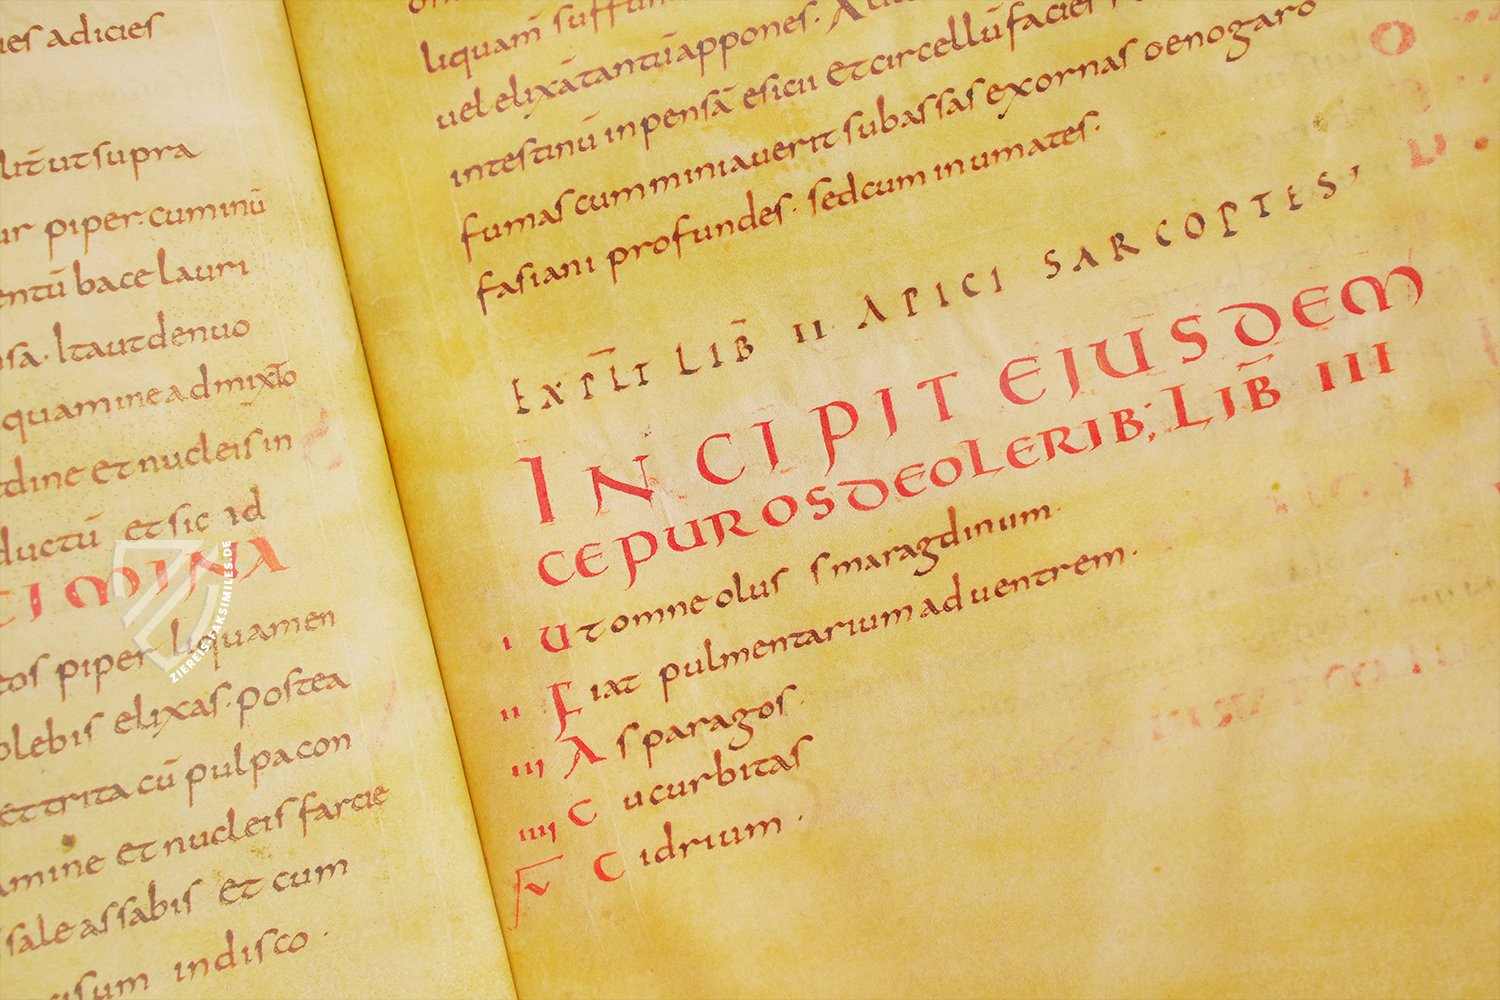 es adicies
ut supra
ur piper. cuminū
entū bace lauri
sa. Itaut denuo
quamine admixto
dine et nucleis in
ductū et sic id
CIMINA
tos piper liquamen
olebis elixas. postea
et trita cū pulpa con
amine et nucleis farcie
sale assabis et cum
isum indisco.
liquam suffun
uel elixā tantū appones. A
intestinū inpensā esicii et circellū facies
fumas cum miniauerit subassas exornas oenogaro
fasiani profundes. sed cum inumates.
EXPLIT LIB II APICI SARCOPTES,
INCIPIT EJUSDEM
CEPUROS DE OLERIB; LIB III
I Ut omne olus smaragdinum
II Fiat pulmentarium ad uentrem.
III Asparagos.
IIII Cucurbitas
V Cidrium.
ZIEREIS-FAKSIMILES.DE